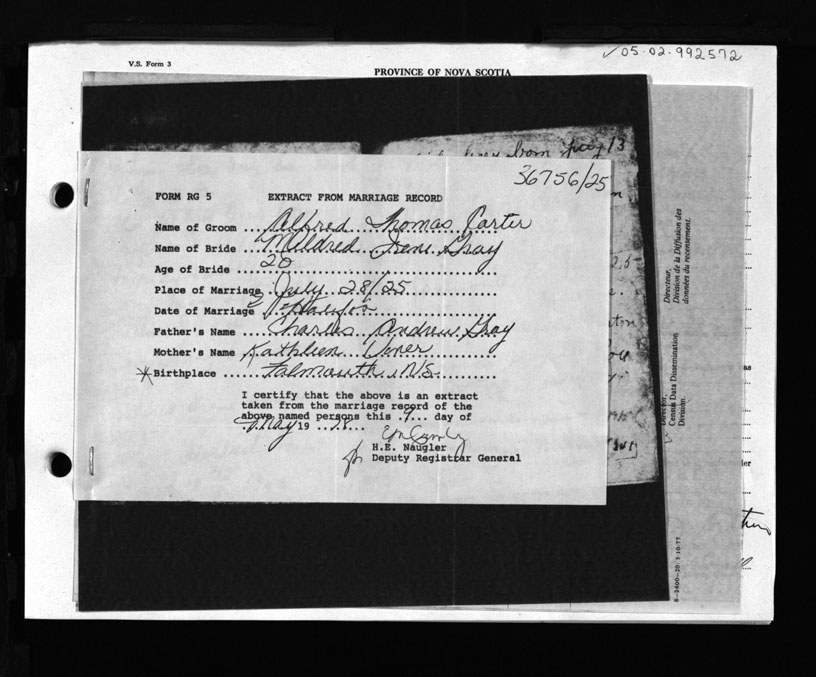 05-02-992572
V.S. Form 3
PROVINCE OF NOVA SCOTIA
from July 13
36756/25
FORM RG 5 EXTRACT FROM MARRIAGE RECORD
Name of Groom ... Alfred Thomas Carter
Name of Bride ... Mildred Irene Gray
Age of Bride ... 20
Place of Marriage July 28/25
Date of Marriage Halifax
Father's Name ... Charles Andrew Gray
Mother's Name Kathleen
Birthplace ... Falmouth N.S.
I certify that the above is an extract
taken from the marriage record of the
above named persons this .9... day of
May 19
H.E. Naugler
for Deputy Registrar General
Directeur,
Division de la Diffusion des
données du recensement.
Director,
Census Data Dissemination
Division.
8-2400-20: 5-10-77